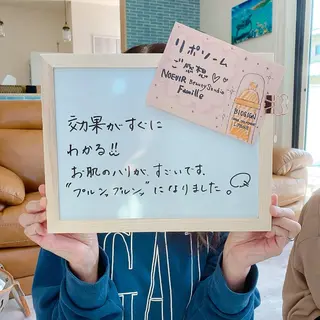 リポソーム
ご感想♡♡
NOEVIR Beauty Studio
Famille
効果がすぐに
わかる!!
お肌のハリが、すごいです。
"プルンプルン"になりました。